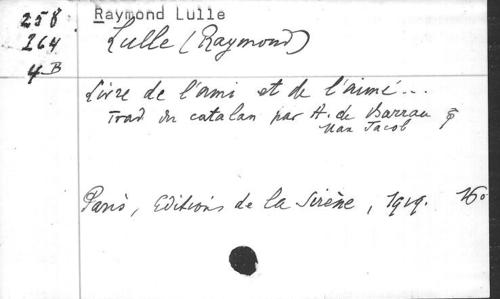 258
264
4.B
Raymond Lulle
Lulle (Raymond)
Livre de l'ami et de l'aimé...
Trad du catalan par A. de Barrau &
Max Jacob
Paris, Editions de la Sirène, 1919. 16º